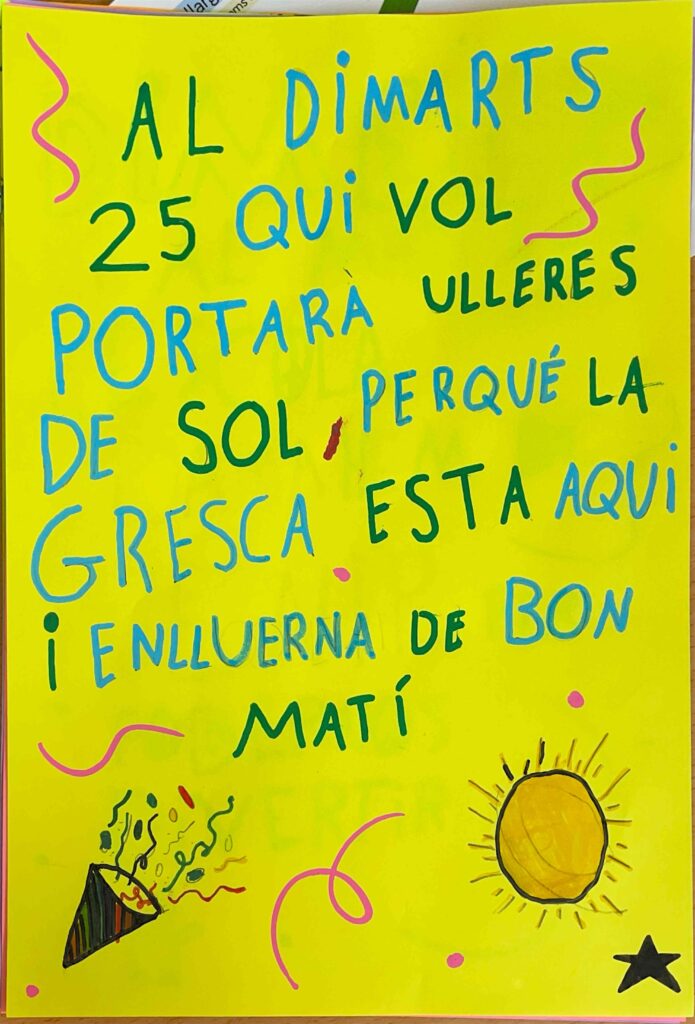 AL DIMARTS
25 QUI VOL
PORTARÀ ULLERES
DE SOL, PERQUÉ LA
GRESCA ESTA AQUI
i ENLLUERNA DE BON
MATÍ